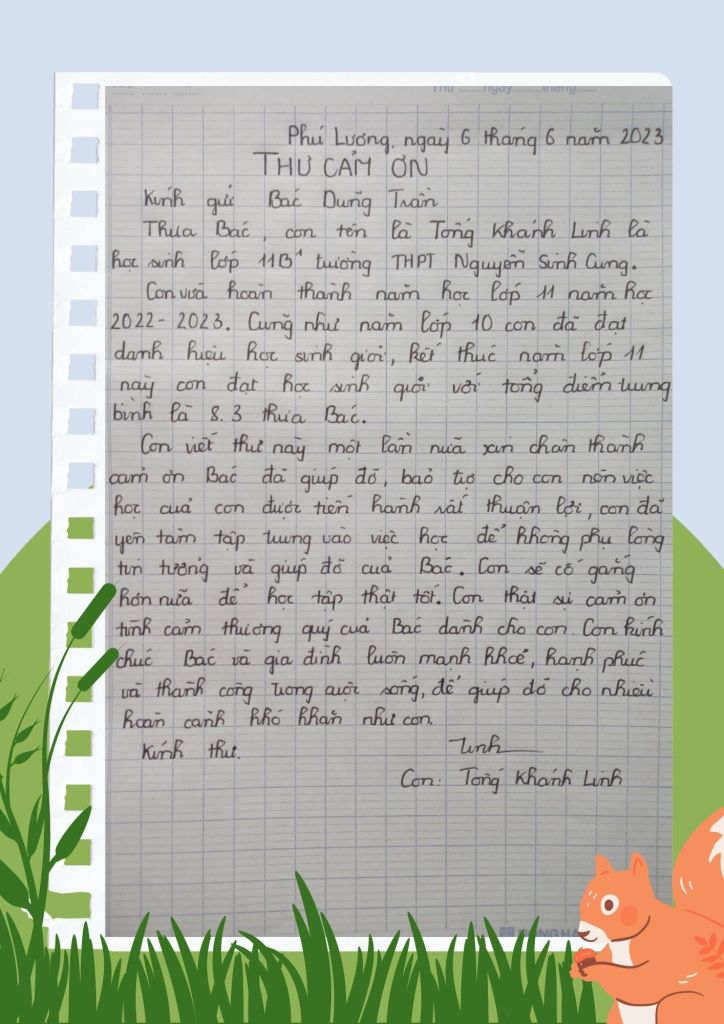 Thứ ......... ngày ......... tháng ......
Phú Lương, ngày 6 tháng 6 năm 2023
THƯ CẢM ƠN
Kính gửi Bác Dung Trần
Thưa Bác, con tên là Tống Khánh Linh là
học sinh lớp 11B1 trường THPT Nguyễn Sinh Cung.
Con vừa hoàn thành năm học lớp 11 năm học
2022 - 2023. Cũng như năm lớp 10 con đã đạt
danh hiệu học sinh giỏi, kết thúc năm lớp 11
này con đạt học sinh giỏi với tổng điểm trung
bình là 8.3 thưa Bác.
Con viết thư này một lần nữa xin chân thành
cảm ơn Bác đã giúp đỡ, bảo trợ cho con nên việc
học của con được tiến hành rất thuận lợi, con đã
yên tâm tập trung vào việc học để không phụ lòng
tin tưởng và giúp đỡ của Bác. Con sẽ cố gắng
hơn nữa để học tập thật tốt. Con thật sự cảm ơn
tình cảm thương quý của Bác dành cho con. Con kính
chúc Bác và gia đình luôn mạnh khoẻ, hạnh phúc
và thành công trong cuộc sống, để giúp đỡ cho nhiều
hoàn cảnh khó khăn như con.
Kính thư.
Linh
Con: Tống Khánh Linh
HONG HA